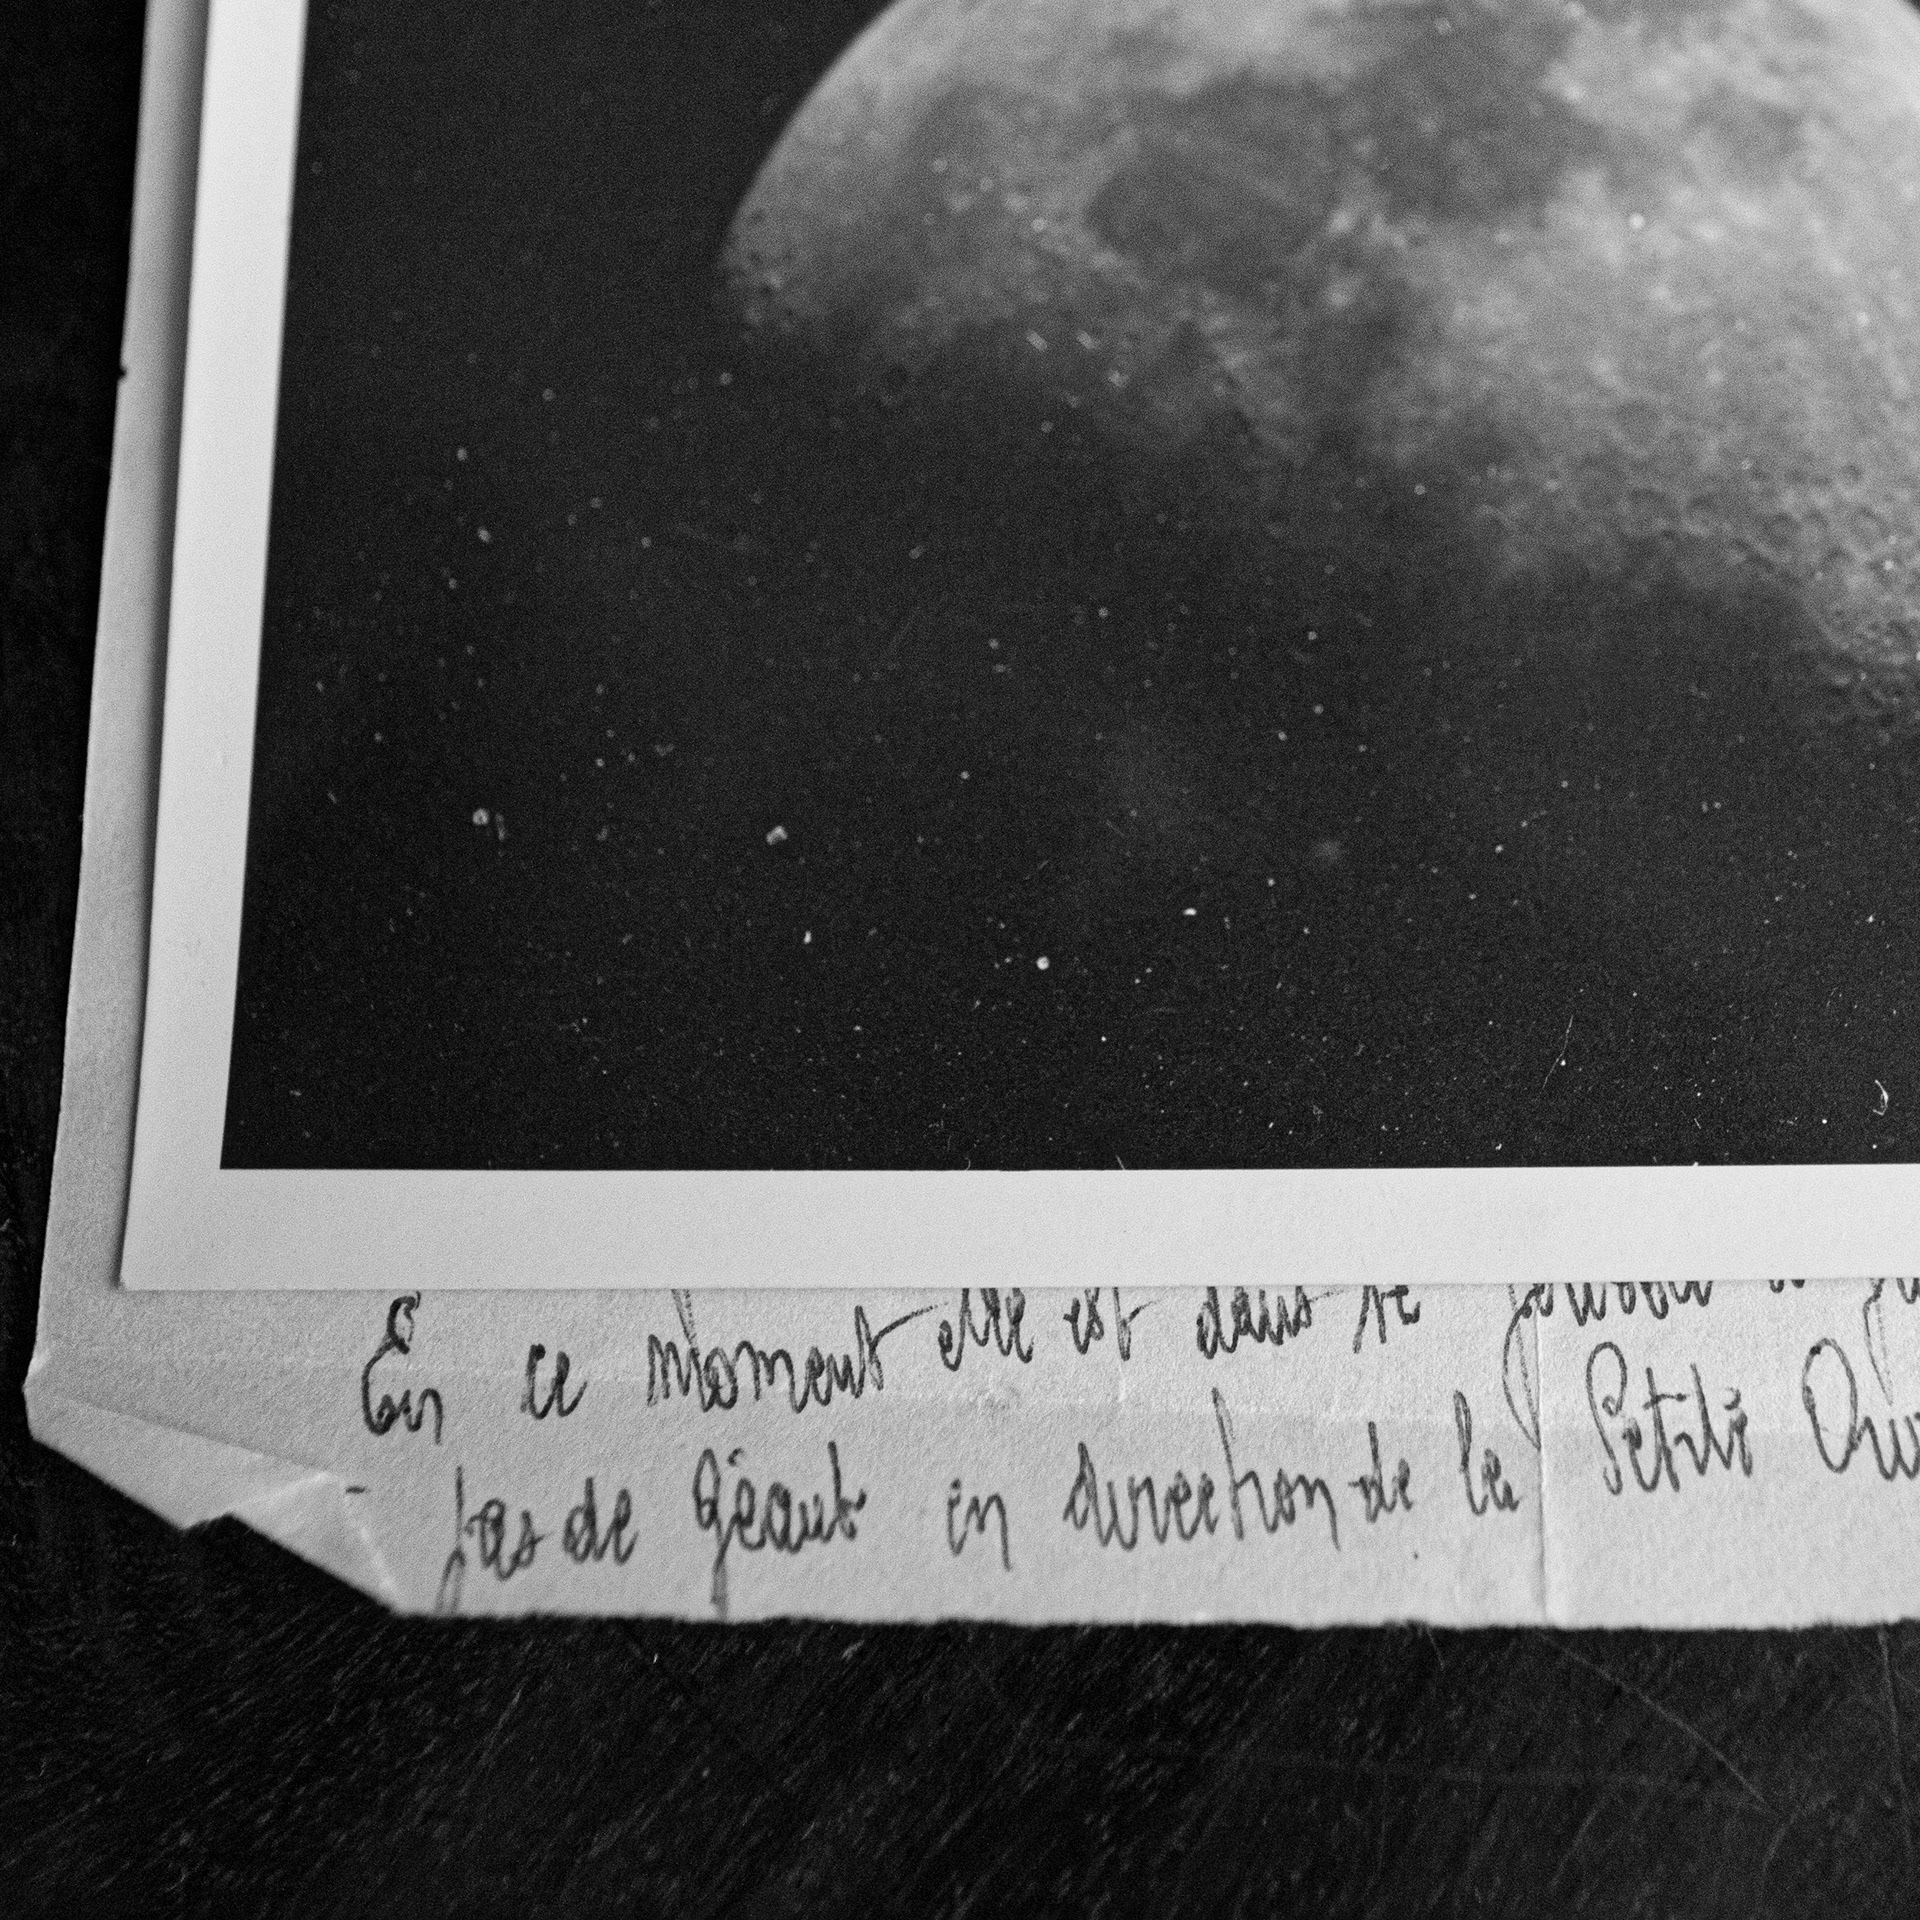 En ce moment elle est dans le
pas de Géant en direction de la Petite